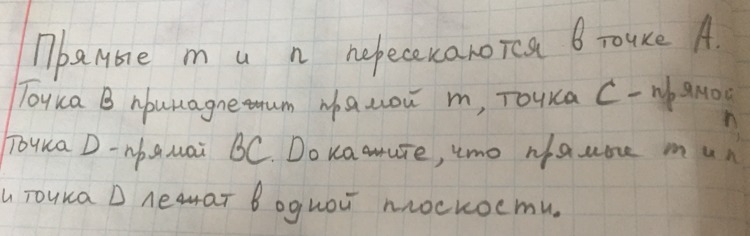 Прямые m и n пересекаются в точке A.
Точка B принадлежит прямой m, точка C - прямой n,
точка D - прямой BC. Докажите, что прямые m и n
и точка D лежат в одной плоскости.